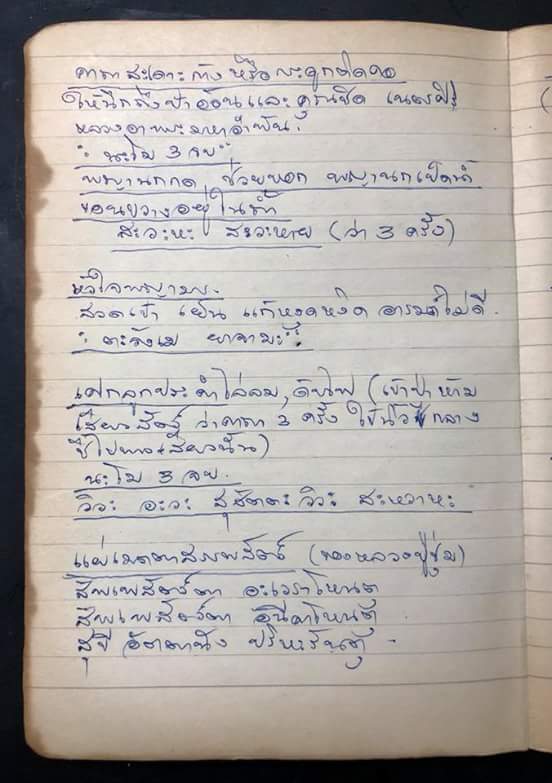 คาถาสะเดาะก้างหรือกระดูกติดคอ
ให้นึกถึงป่าอ้อนและคุณชิต
หลวงตาพระมหาอำพัน.
: นะโม 3 จบ :
พญานกกด ช่วยบอก พญานกเป็ดน้ำ
นอนขวางอยู่ในถ้ำ
สะวะหะ สะวะหาย (ว่า 3 ครั้ง)
หัวใจพญามาร.
สวดเช้า เย็น แก้หงุดหงิด อารมณ์ไม่ดี.
: ตะลังเม ยาจามะ :
เสกลูกประคำไล่ลม, ดับไฟ (เข้าป่าห้าม
เสียงสัตว์ ว่าคาถา 3 ครั้ง ใช้นิ้วชี้กลาง
ชี้ไปทางเสียงนั้น)
นะโม 3 จบ.
วิวะ อะวะ สุสัตตะ วิวะ สะหวาหะ
แผ่เมตตาสรรพสัตว์ (ของหลวงปู่ชุ่ม)
สัพเพสัตว์ตา อะเวราโหนตุ
สัพเพสัตว์ตา อนีคาโหนตุ
สุขี อัตตานัง ปริหะรันตุ -